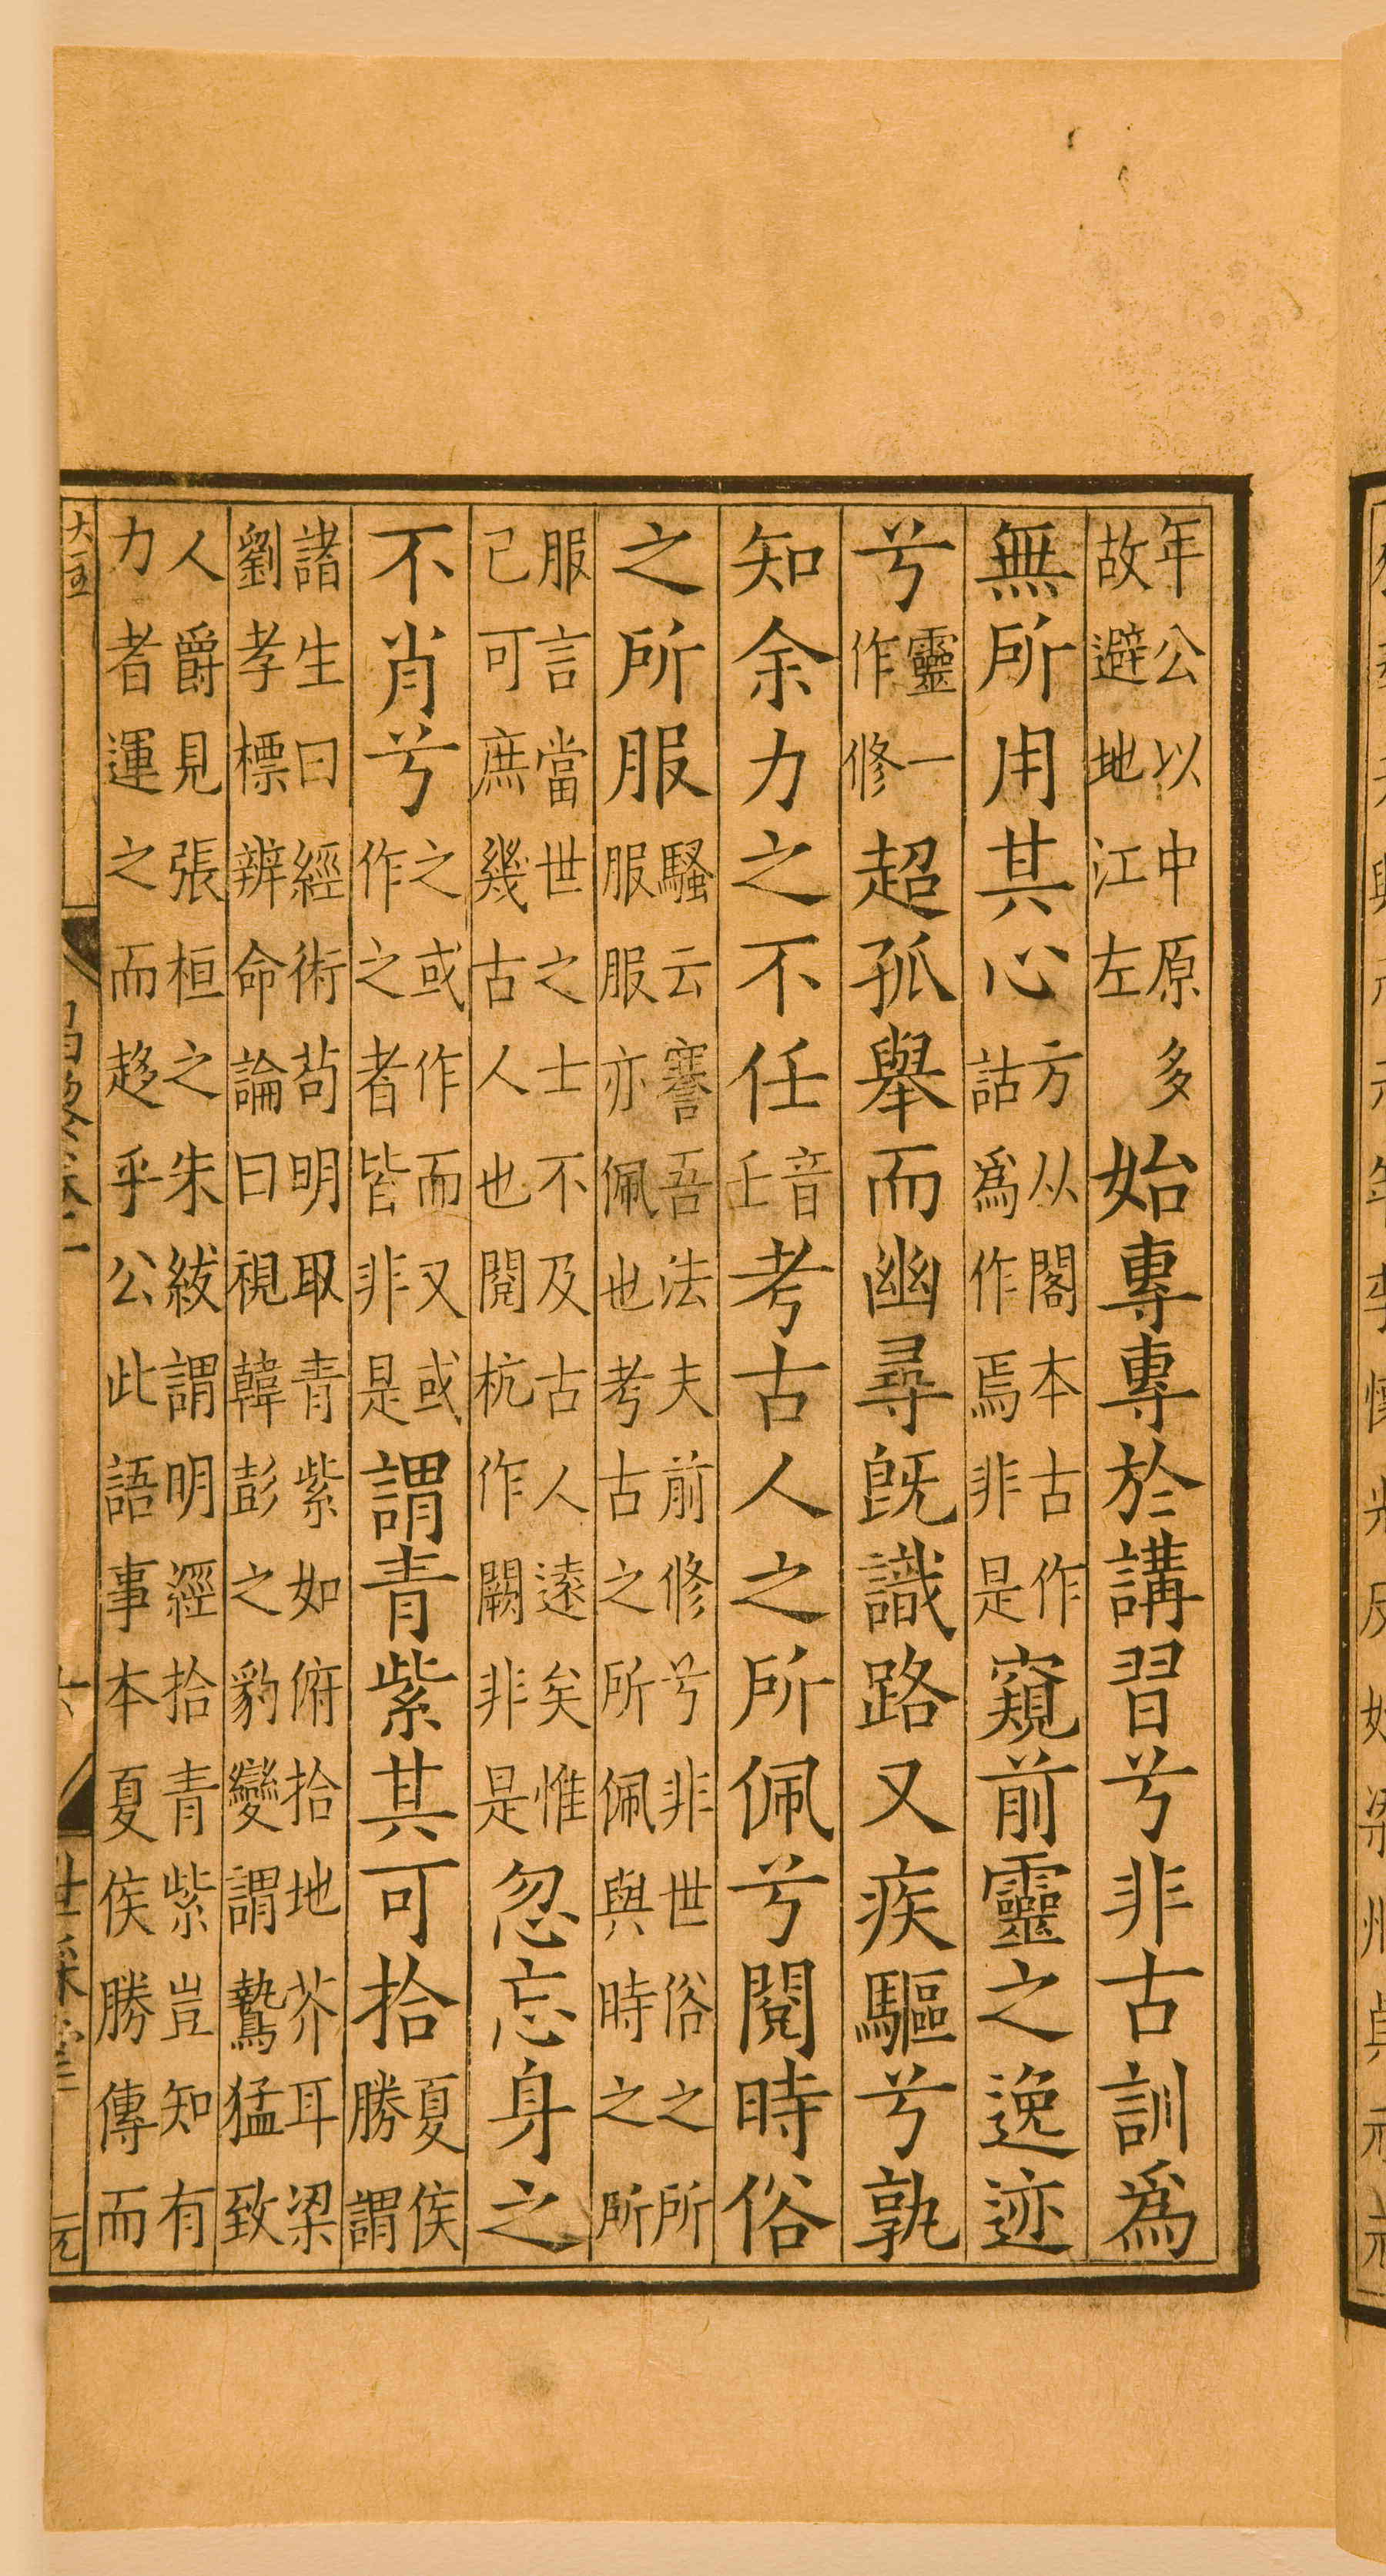 年公以中原多故避地江左始專專於講習兮非古訓爲
無所用其心方从閣本古作詁爲作焉非是窺前靈之逸迹
兮靈一作修超孤舉而幽尋旣識路又疾驅兮孰
知余力之不任音壬考古人之所佩兮閱時俗
之所服騷云謇吾法夫前修兮非世俗之所服服亦佩也考古之所佩與時之所
服言當世之士不及古人遠矣惟己可庶幾古人也閱杭作闕非是忽忘身之
不肖兮之或作而又或作之者皆非是謂青紫其可拾夏侯勝謂
諸生曰經術苟明取青紫如俯拾地芥耳梁劉孝標辨命論曰視韓彭之豹變謂鷙猛致
人爵見張桓之朱紱謂明經拾青紫豈知有力者運之而趍乎公此語事本夏侯勝傳而